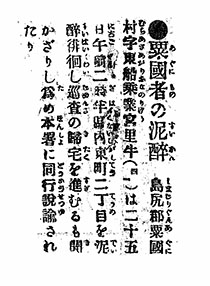 ●粟國者の泥酔　島尻郡粟國
村字東船乗業宮里牛(四一)は二十五
日午後二時半區内東町二丁目を泥
酔徘徊し巡査の歸宅を進むるも聞
かざりし為め本署に同行說諭され
たり